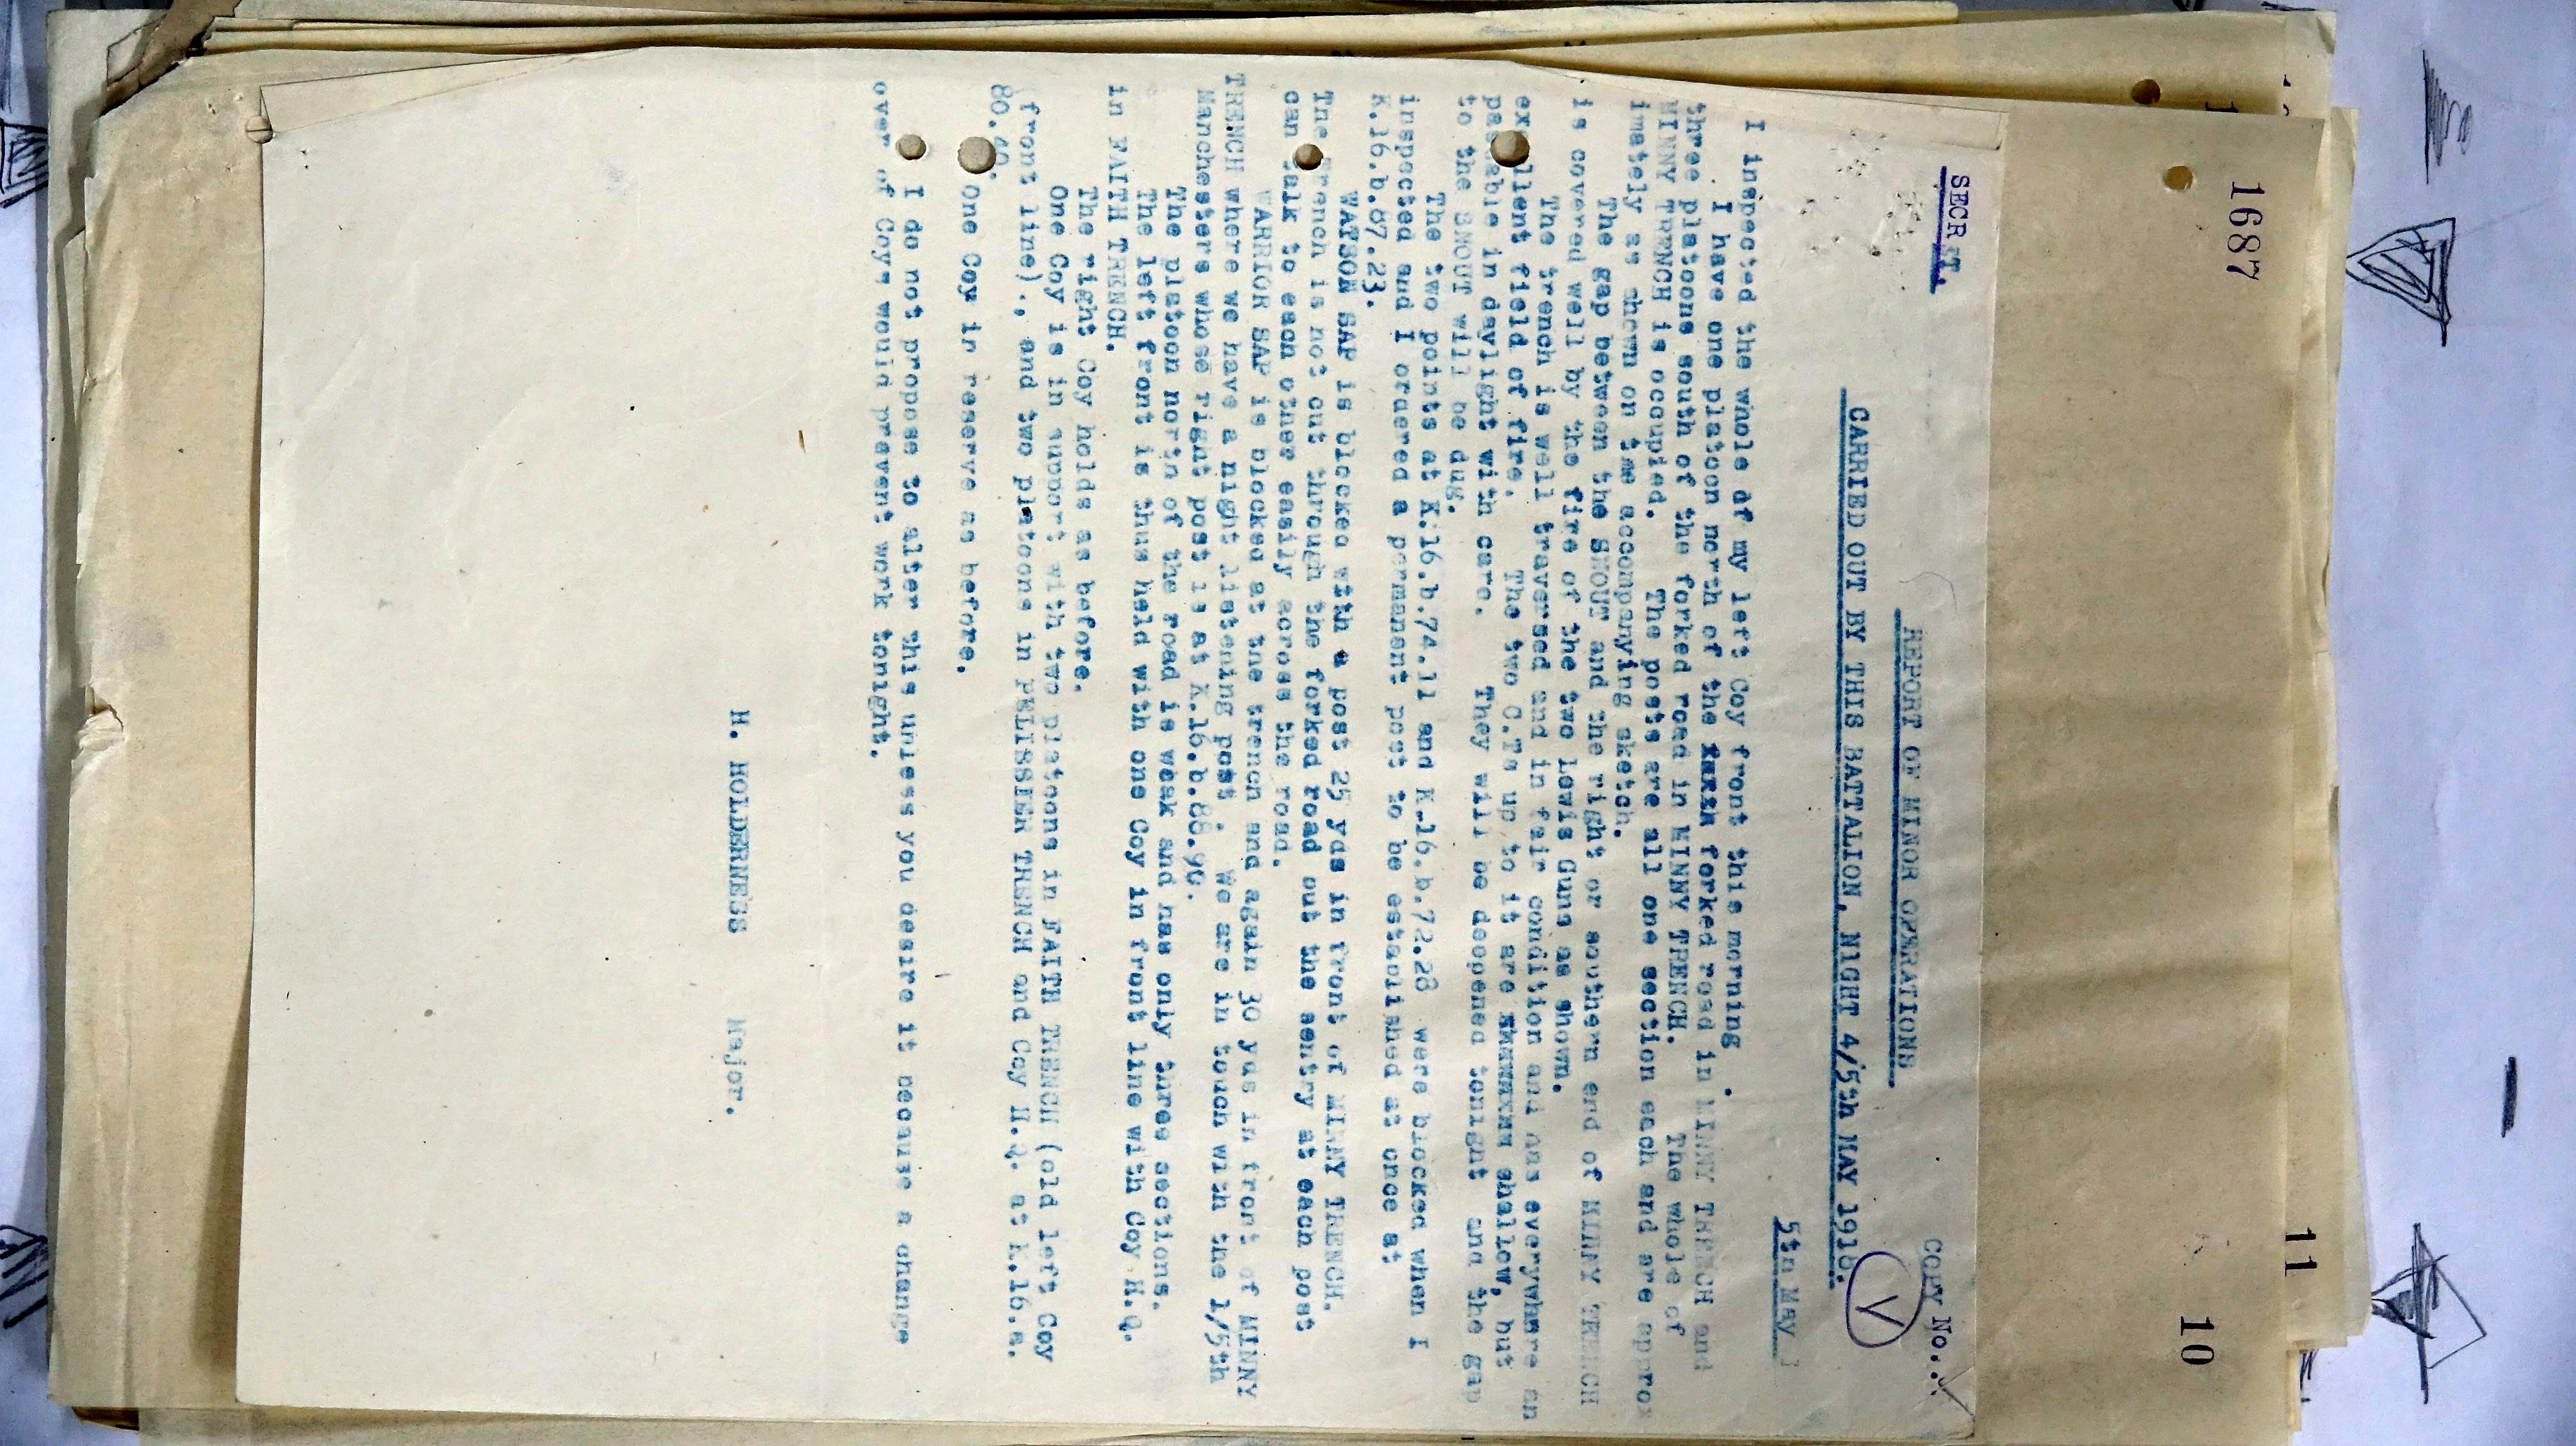 1687
11
10
SECRET.
COPY No...
V
REPORT OF MINOR OPERATIONS
CARRIED OUT BY THIS BATTALION, NIGHT 4/5th MAY 1918.
5th May
I inspected the whole of my left Coy front this morning .
I have one platoon north of the forked road in MINNY TRENCH and
three platoons south of the forked road in MINNY TRENCH. The whole of
MINNY TRENCH is occupied. The posts are all one section each and are approx
imately as shown on the accompanying sketch.
The gap between the SNOUT and the right or southern end of MINNY TRENCH
is covered well by the fire of the two Lewis Guns as shown.
The trench is well traversed and in fair condition and has everywhere an
excellent field of fire. The two C.Ts up to it are shallow, but
passable in daylight with care. They will be deepened tonight and the gap
to the SNOUT will be dug.
The two points at K.16.b.74.11 and K.16.b.72.28 were blocked when I
inspected and I ordered a permanent post to be established at once at
K.16.b.87.23.
WATSON SAP is blocked with a post 25 yds in front of MINNY TRENCH.
The trench is not cut through the forked road but the sentry at each post
can talk to each other easily across the road.
WARRIOR SAP is blocked at the trench and again 30 yds in front of MINNY
TRENCH where we have a night listening post . We are in touch with the 1/5th
Manchesters whose right post is at K.16.b.88.90.
The platoon north of the road is weak and has only three sections.
The left front is thus held with one Coy in front line with Coy H.Q.
in FAITH TRENCH.
The right Coy holds as before.
One Coy is in support with two platoons in FAITH TRENCH (old left Coy
front line)., and two platoons in PELISSIER TRENCH and Coy H.Q. at K.16.a.
80.40.
One Coy in reserve as before.
I do not propose to alter this unless you desire it because a change
over of Coys would prevent work tonight.
H. HOLDERNESS Major.